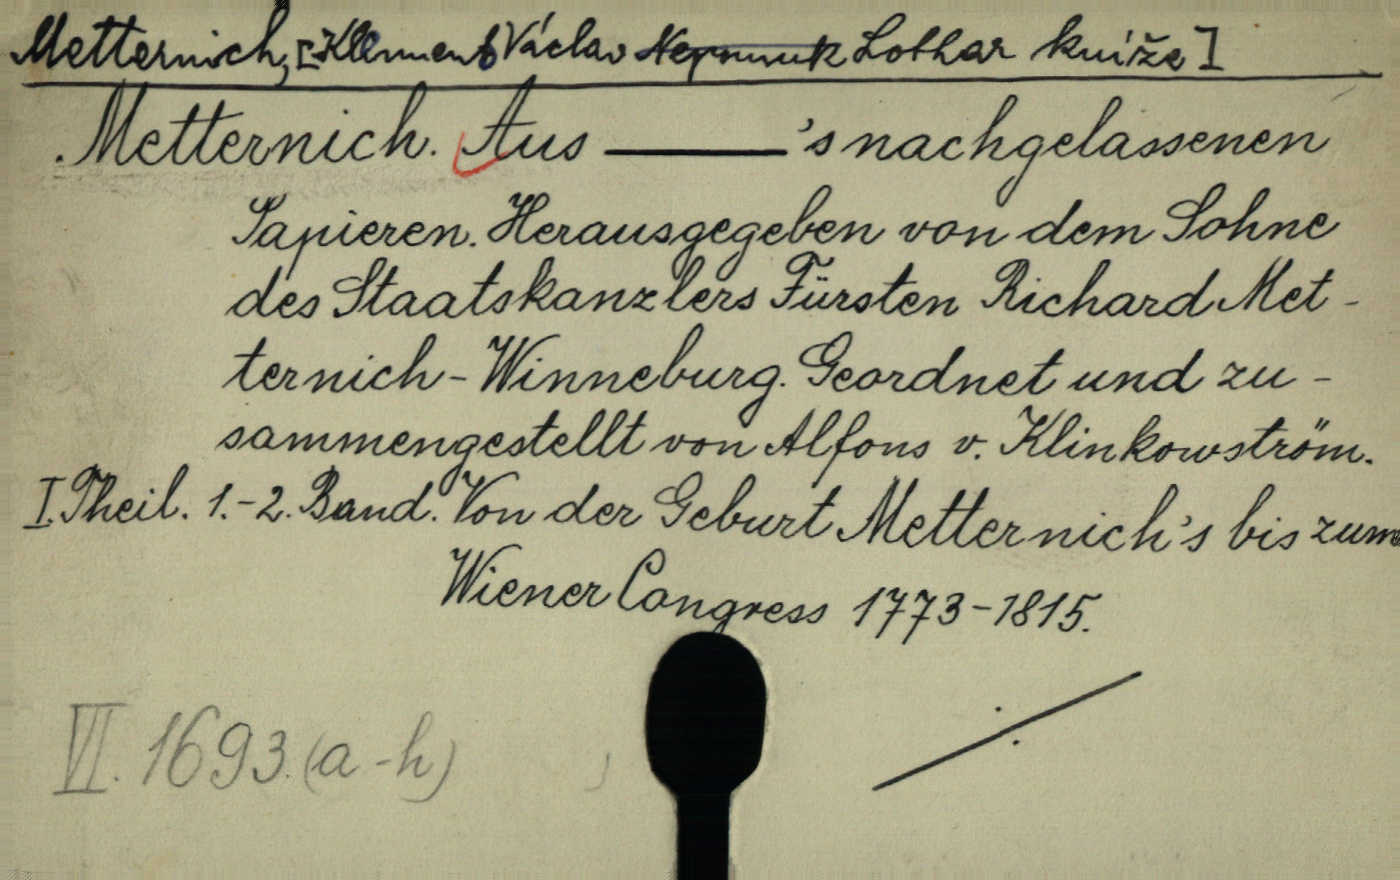 Metternich, [Klement Václav Nepomuk Lothar kníže]
Metternich. Aus ———'s nachgelassenen
Papieren. Herausgegeben von dem Sohne
des Staatskanzlers Fürsten Richard Met-
ternich-Winneburg. Geordnet und zu-
sammengestellt von Alfons v. Klinkowström.
I. Theil. 1.-2. Band. Von der Geburt Metternich's bis zum
Wiener Congress 1773-1815.
VI. 1693 (a-h)